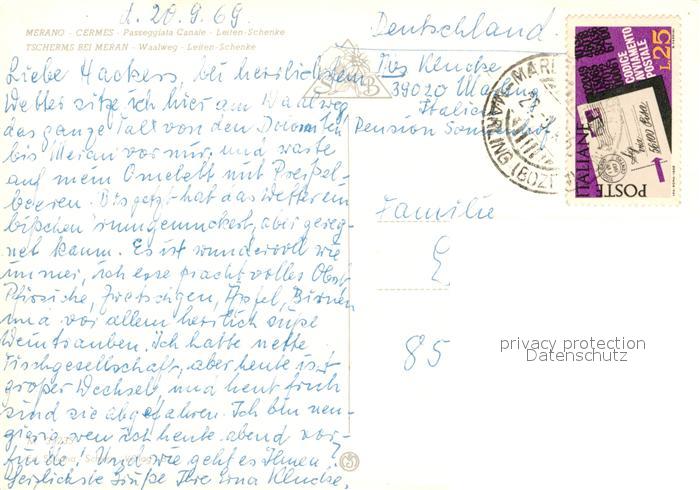 d. 20.9.69.
MERANO - CERMES - Passeggiata Canale - Leiten-Schenke
TSCHERMS BEI MERAN - Waalweg - Leiten-Schenke
Liebe Hackers, bei herrlichstem
Wetter sitze ich hier am Waalweg
das ganze Tal von den Dolomiten
bis Meran vor mir, und warte
auf mein Omelett mit Preißel-
beeren. Bis jetzt hat das Wetter ein
bißchen rumgemuckert, aber gereg-
net kaum. Es ist wundervoll wie
immer, ich esse prachtvolles Obst
Pfirsiche, Zwetschgen, Äpfel, Birnen
und vor allem herrlich süße
Weintrauben. Ich hatte nette
Tischgesellschaft, aber heute ist
großer Wechsel, und heut früh
sind sie abgefahren. Ich bin neu-
gierig wen ich heute abend vor-
finde! Und wie geht es Ihnen?
Herzlichste Grüße Ihre Erna
Deutschland
39020 Marling
Italien
Pension Sonnenhof
MARLING (BOZ
POSTE ITALIANE
L.25
CODICE
AVVIAMENTO
POSTALE
Familie
85
privacy protection
Datenschutz